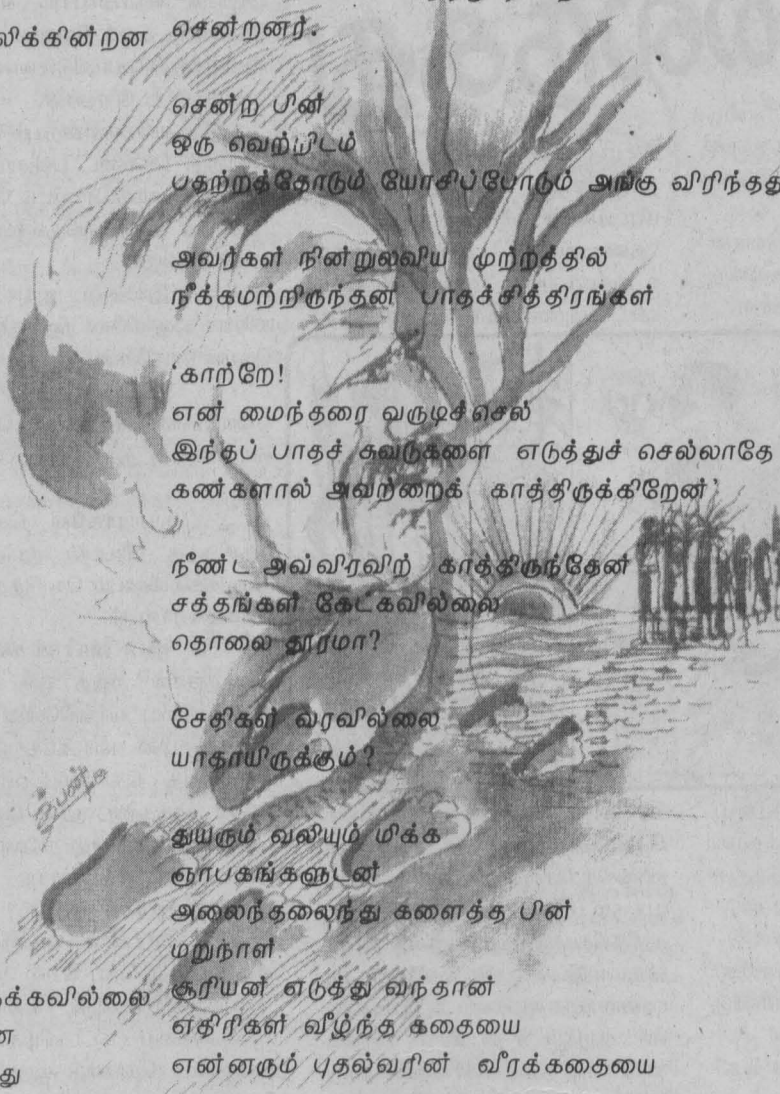 லிக்கின்றன
க்கவில்லை
ன
து
சென்றனர்.
சென்ற பின்
ஒரு வெற்றிடம்
பதற்றத்தோடும் யோசிப்போடும் அங்கு விரிந்தது
அவர்கள் நின்றுலவிய முற்றத்தில்
நீக்கமற்றிருந்தன பாதச்சித்திரங்கள்
‘காற்றே!
என் மைந்தரை வருடிச்செல்
இந்தப் பாதச் சுவடுகளை எடுத்துச் செல்லாதே
கண்களால் அவற்றைக் காத்திருக்கிறேன்’
நீண்ட அவ்விரவிற் காத்திருந்தேன்
சத்தங்கள் கேட்கவில்லை
தொலை தூரமா?
சேதிகள் வரவில்லை
யாதாயிருக்கும்?
துயரும் வலியும் மிக்க
ஞாபகங்களுடன்
அலைந்தலைந்து களைத்த பின்
மறுநாள்
சூரியன் எடுத்து வந்தான்
எதிரிகள் வீழ்ந்த கதையை
என்னரும் புதல்வரின் வீரக்கதையை